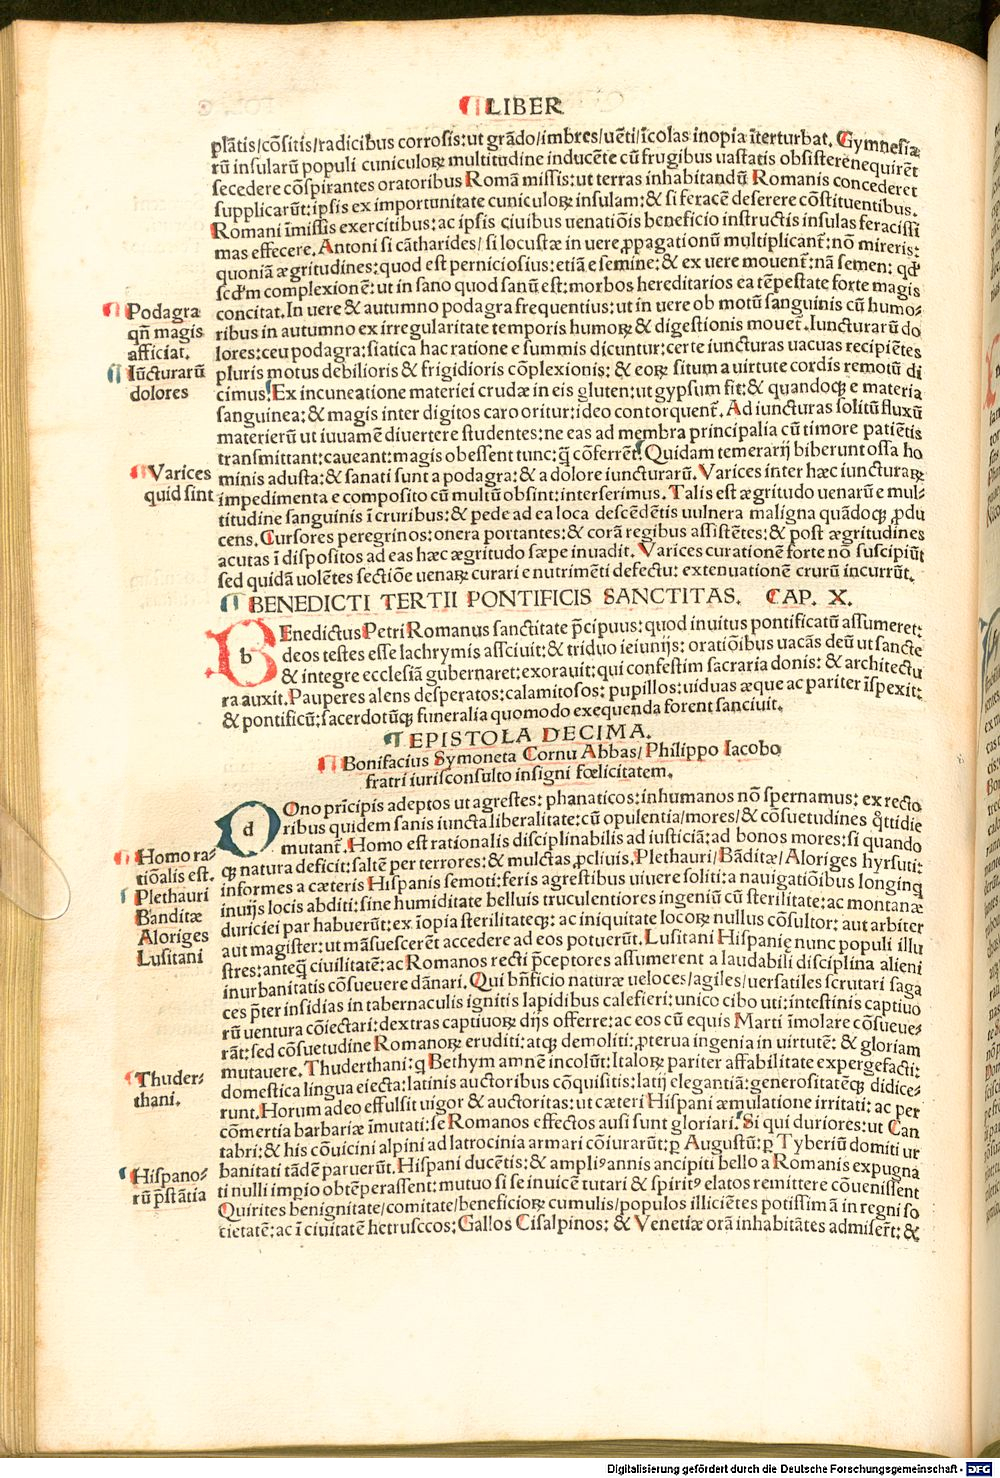 ¶LIBER
plãtis/cõsitis/radicibus corrosis: ut grãdo/imbres/uẽti/ĩcolas inopia ĩterturbat. Gymnesia
rũ insularũ populi cuniculoꝝ multitudine inducẽte cũ frugibus uastatis obsistere nequirẽt
secedere cõspirantes oratoribus Romã missis: ut terras inhabitandũ Romanis concederet
supplicarũt: ipsis ex importunitate cuniculoꝝ insulam: & si feracẽ deserere cõstituentibus.
Romani ĩmissis exercitibus: ac ipsis ciuibus uenatiõis beneficio instructis insulas feracissi
mas effecere. Antoni si cãtharides/ si locustæ in uere ꝓpagationũ multiplicant̃: nõ mireris:
quoniã ægritudines: quod est perniciosius: etiã e semine: & ex uere mouent̃: nã semen: qd'
scd'm complexionẽ: ut in sano quod sanũ est: morbos hereditarios ea tẽpestate forte magis
¶Podagra
qñ magis
afficiat.
concitat. In uere & autumno podagra frequentius: ut in uere ob motũ sanguinis cũ humo-
ribus in autumno ex irregularitate temporis humoꝝ & digestionis mouet̃. Iuncturarũ do
lores: ceu podagra: siatica hac ratione e summis dicuntur: certe iuncturas uacuas recipiẽtes
¶Iũcturarũ
dolores
pluris motus debilioris & frigidioris cõplexionis: & eoꝝ situm a uirtute cordis remotũ di
cimus. Ex incuneatione materiei crudæ in eis gluten: ut gypsum fit: & quandoqꝫ e materia
sanguinea: & magis inter digitos caro oritur: ideo contorquent̃. Ad iuncturas solitũ fluxũ
materierũ ut iuuamẽ diuertere studentes: ne eas ad membra principalia cũ timore patiẽtis
transmittant: caueant: magis obessent tunc: q̃ cõferrẽt. Quidam temerarij biberunt ossa ho
¶Varices
quid sint
minis adusta: & sanati sunt a podagra: & a dolore iuncturarũ. Varices inter hæc iuncturaꝝ
impedimenta e composito cũ multũ obsint: interserimus. Talis est ægritudo uenarũ e mul-
titudine sanguinis ĩ cruribus: & pede ad ea loca descẽdẽtis uulnera maligna quãdoqꝫ ꝓdu
cens. Cursores peregrinos: onera portantes: & corã regibus assistẽtes: & post ægritudines
acutas ĩ dispositos ad eas hæc ægritudo sæpe inuadit. Varices curationẽ forte nõ suscipiũt
sed quidã uolẽtes sectiõe uenaꝝ curari e nutrimẽti defectu: extenuationẽ crurũ incurrũt.
¶BENEDICTI TERTII PONTIFICIS SANCTITAS. CAP. X.
b
BEnedictus Petri Romanus sanctitate p̃cipuus: quod inuitus pontificatũ assumeret:
deos testes esse lachrymis assciuit: & triduo ieiunijs: oratiõibus uacãs deũ ut sancte
& integre ecclesiã gubernaret: exorauit: qui confestim sacraria donis: & architectu
ra auxit. Pauperes alens desperatos: calamitosos: pupillos: uiduas æque ac pariter ĩspexit:
& pontificũ: sacerdotũqꝫ funeralia quomodo exequenda forent sanciuit.
¶EPISTOLA DECIMA.
¶Bonifacius Symoneta Cornu Abbas/ Philippo Iacobo
fratri iurisconsulto insigni fœlicitatem.
d
Ono prĩcipis adeptos ut agrestes: phanaticos: inhumanos nõ spernamus: ex recto
ribus quidem sanis iuncta liberalitate: cũ opulentia/mores/& cõsuetudines q̊ttidie
mutant̃. Homo est rationalis disciplinabilis ad iusticiã: ad bonos mores: si quando
¶Homo ra-
tiõalis est.
qꝫ natura deficit: saltẽ per terrores: & mulctas ꝓcliuis. Plethauri/Bãditæ/Aloriges hyrsuti:
informes a cæteris Hispanis semoti: feris agrestibus uiuere soliti: a nauigatiõibus longinq
¶Plethauri
Banditæ
Aloriges
Lusitani
inuijs locis abditi: sine humiditate belluis truculentiores ingeniũ cũ sterilitate: ac montanæ
duriciei par habuerũt: ex ĩopia sterilitateqꝫ: ac iniquitate locoꝝ nullus cõsultor: aut arbiter
aut magister: ut mãsuescerẽt accedere ad eos potuerũt. Lusitani Hispanię nunc populi illu
stres: anteq̃ ciuilitatẽ: ac Romanos recti p̃ceptores assumerent a laudabili disciplina alieni
inurbanitatis cõsueuere dãnari. Qui bñficio naturæ ueloces/agiles/uersatiles scrutari saga
ces p̃ter insidias in tabernaculis ignitis lapidibus calefieri: unico cibo uti: intestinis captiuo
rũ uentura cõiectari: dextras captiuoꝝ dijs offerre: ac eos cũ equis Marti ĩmolare cõsueue-
rãt: sed cõsuetudine Romanoꝝ eruditi: atqꝫ demoliti: ꝓterua ingenia in uirtutẽ: & gloriam
mutauere. Thuderthani: q Bethym amnẽ incolũt: Italoꝝ pariter affabilitate expergefacti:
¶Thuder-
thani.
domestica lingua eiecta: latinis auctoribus cõquisitis: latij elegantiã: generositatẽqꝫ didice-
runt. Horum adeo effulsit uigor & auctoritas: ut cæteri Hispani æmulatione irritati: ac per
cõmertia barbariæ ĩmutati: se Romanos effectos ausi sunt gloriari. Si qui duriores: ut Can
tabri: & his cõuicini alpini ad latrocinia armari cõiurarũt: ꝑ Augustũ: ꝑ Tyberiũ domiti ur
¶Hispano-
rũ p̃stãtia
banitati tãdẽ paruerũt. Hispani ducẽtis: & ampliꝰ annis ancipiti bello a Romanis expugna
ti nulli impio obtẽperassent: mutuo si se inuicẽ tutari & spiritꝰ elatos remittere cõuenissent
Quirites benignitate/comitate/beneficioꝝ cumulis/populos illiciẽtes potissimã in regni so
cietatẽ: ac ĩ ciuitatẽ hetrusccos: Gallos Cisalpinos: & Venetiæ orã inhabitãtes admiserũt: &
Digitalisierung gefördert durch die Deutsche Forschungsgemeinschaft - DFG